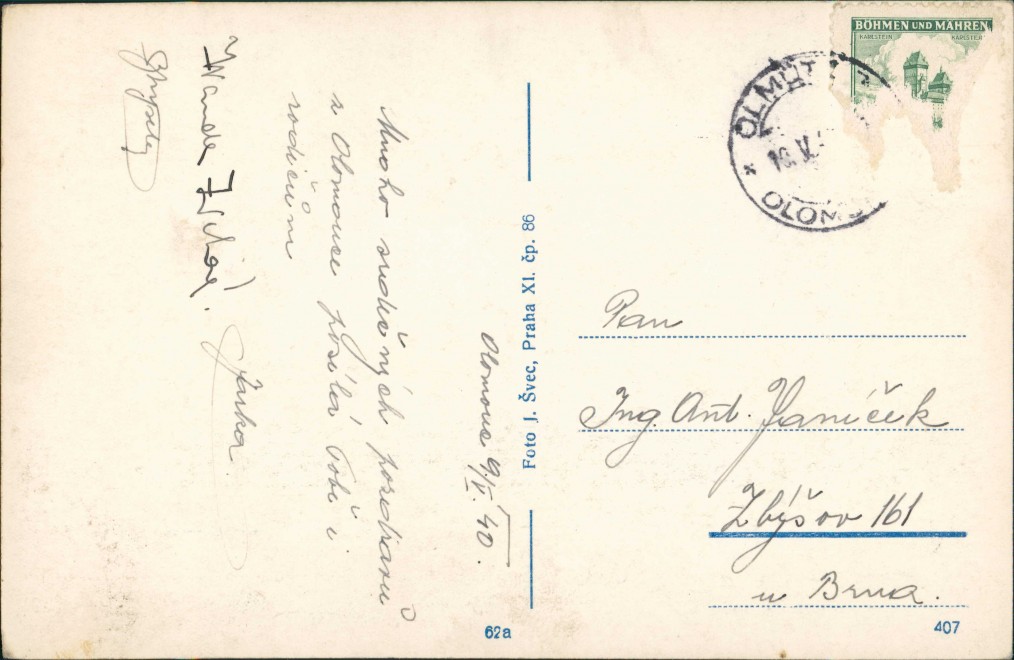 BÖHMEN UND MÄHREN
KARLSTEIN
OLMÜTZ
10. V.
OLOMO
Olomouc 9/V. 40.
Mnoho srdečných pozdravů
z Olomouce posílá Tobě i
rodičům
Jarka.
Foto J. Švec, Praha XI. čp. 86
Pan
Ing. Ant. Janíček
Zbýšov 161
u Brna.
62a
407